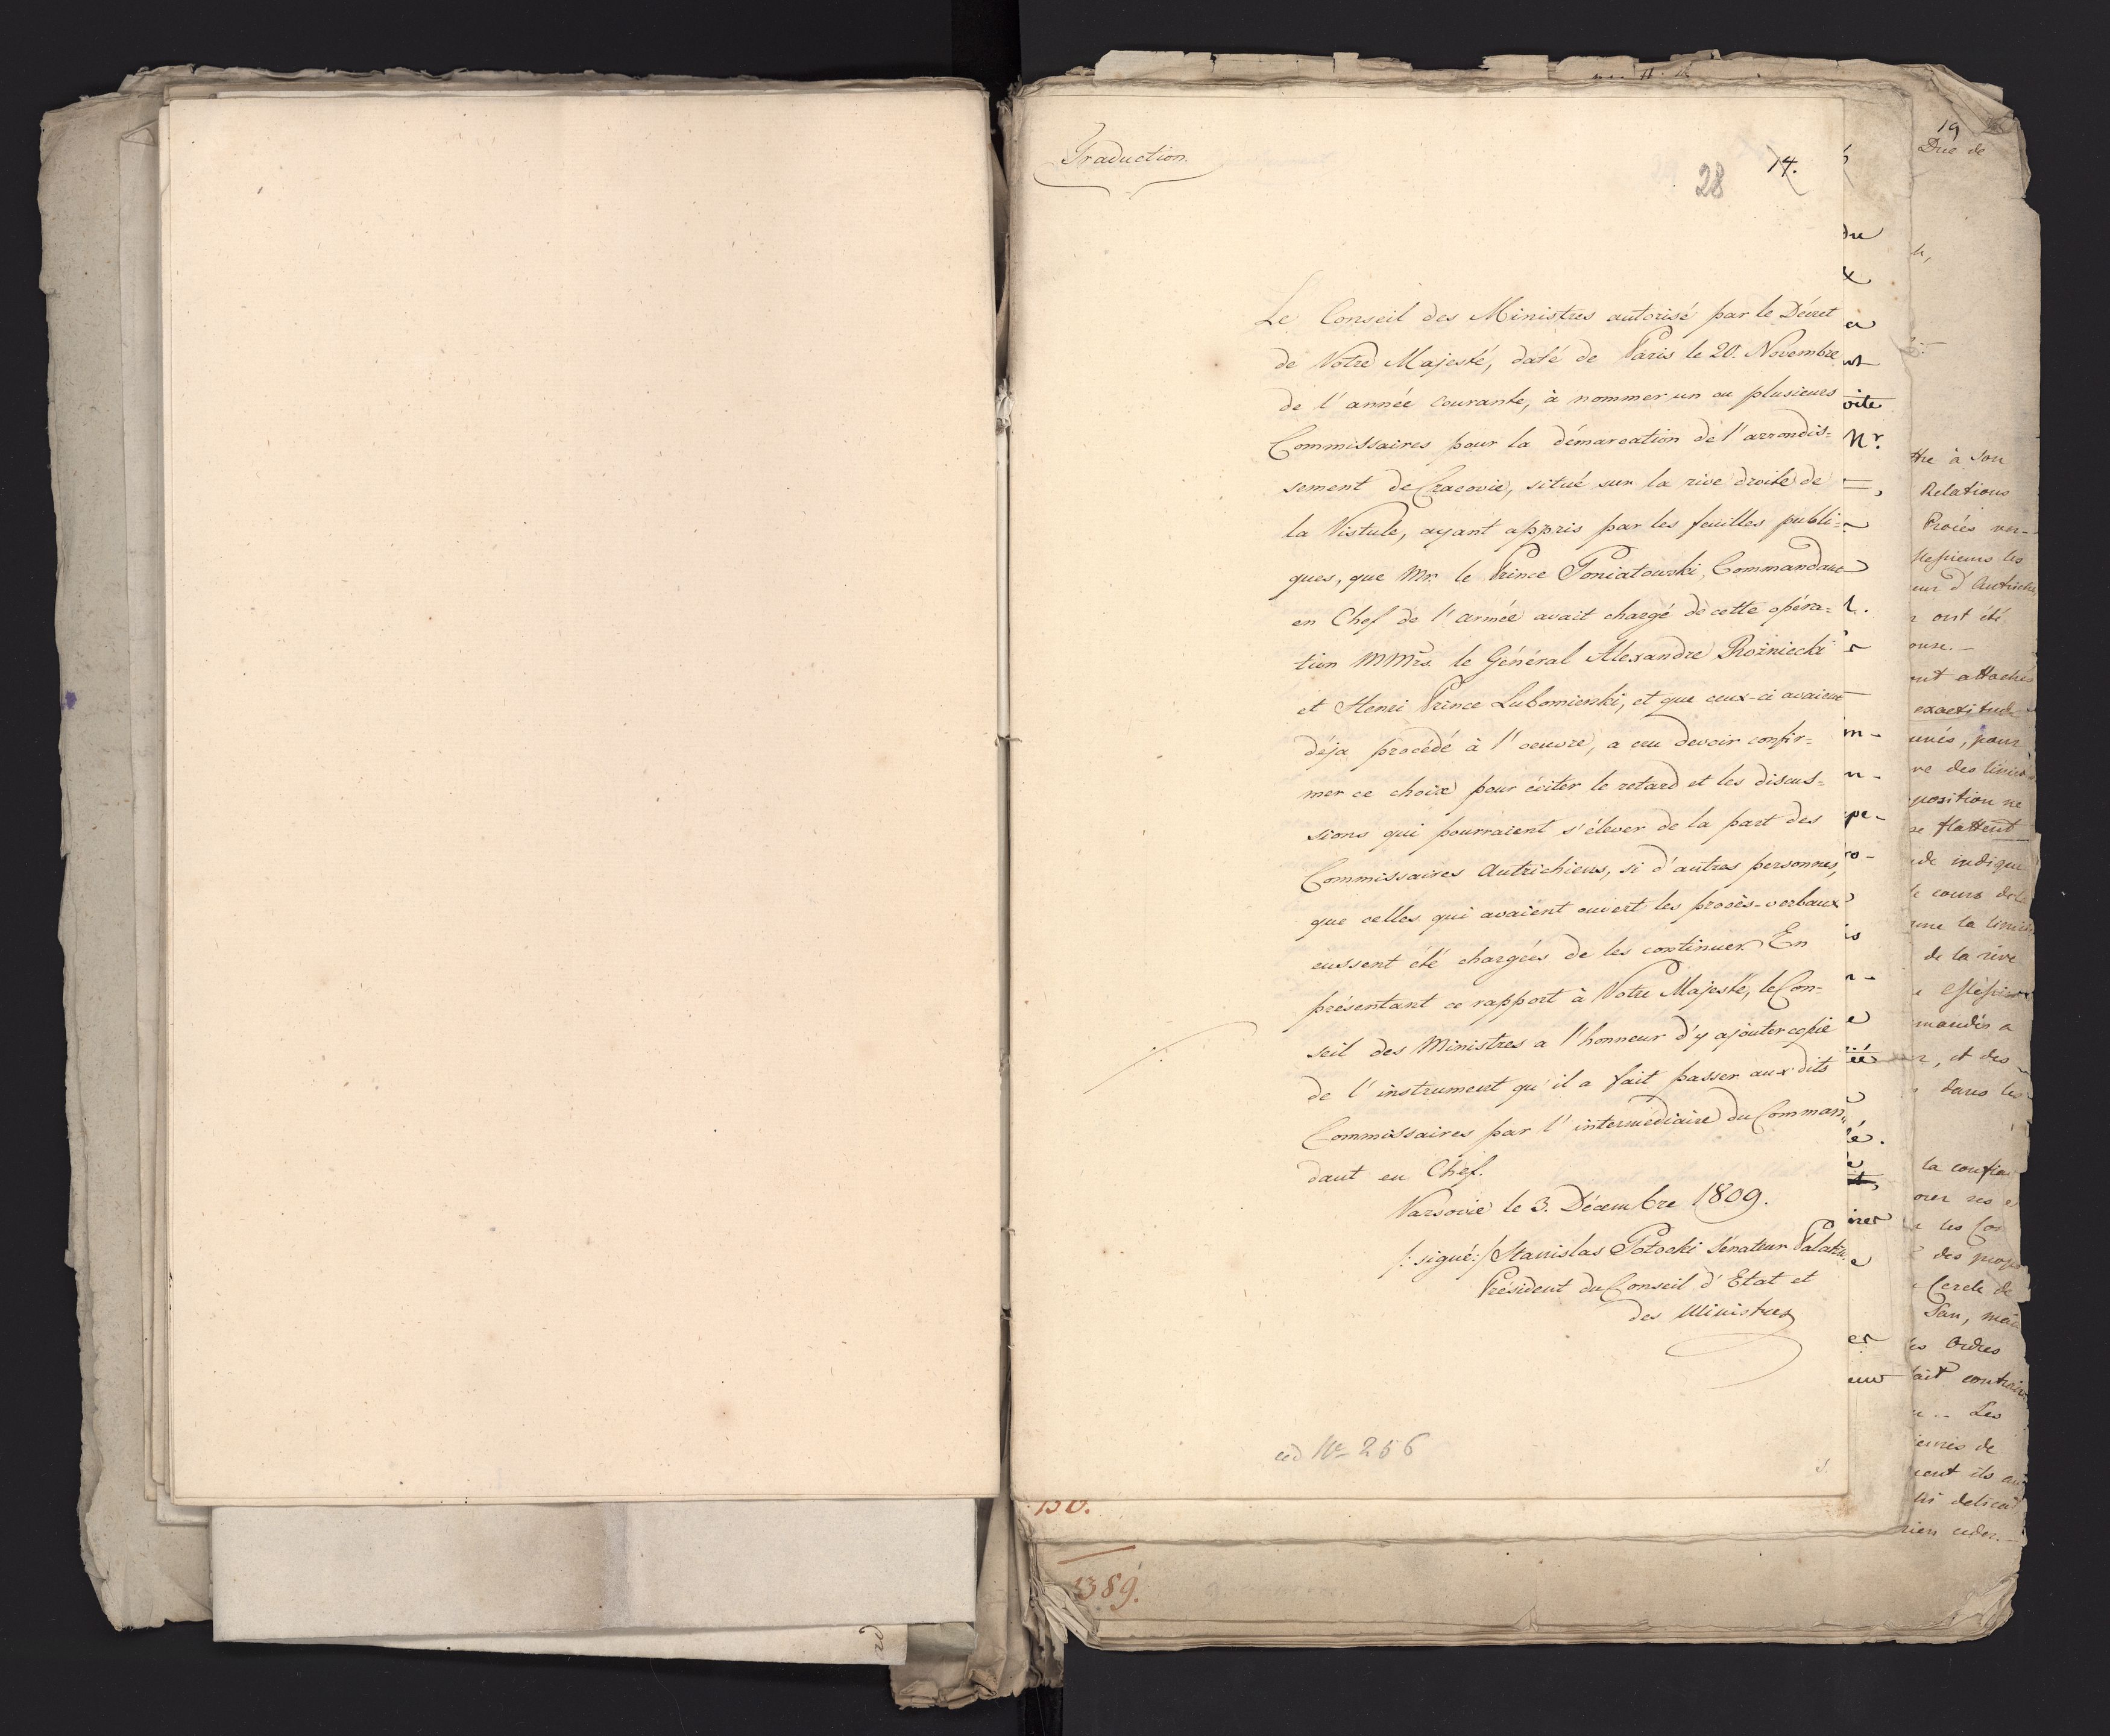 Traduction.
28
14.
Le Conseil des Ministres autorisé par le Décret
de Votre Majesté, daté de Paris le 20. Novembre
de l'année courante, à nommer un ou plusieurs
Commissaires pour la démarcation de l'arrondis=
sement de Cracovie, situé sur la rive droite de
la Vistule, ayant appris par les feuilles publi=
ques, que Mr. le Prince Poniatowski, Commandant
en Chef de l'armée avait chargé de cette opéra=
tion MMrs. le Général Alexandre Rożniecki
et Henri Prince Lubomierski, et que ceux-ci avaient
déja procédé à l'oeuvre, a cru devoir confir=
mer ce choix pour éviter le retard et les discus=
sions qui pourraient s'élever de la part des
Commissaires Autrichiens, si d'autres personnes,
que celles qui avaient ouvert les procès-verbaux
eussent été chargées de les continuer. En
présentant ce rapport à Votre Majesté, le Con=
seil des Ministres a l'honneur d'y ajouter copie
de l'instrument qu'il a fait passer aux dits
Commissaires par l'intermédiaire du Comman=
dant en Chef.
Varsovie le 3. Décembre 1809.
/: signé:/ Stanislas Potocki Sénateur Palatin
Président du Conseil d'Etat et
des Ministres
ad No 256
389.
19
Duc de
du
oite
Nr.
tre à son
Relations
Procès ver-
eur d'Autriche
ont été
ont attachés
exactitude
position ne
se flattent
indique
le cours de la
de la rive
, et des
dans les
des
Cercle de
San,
les Ordres
Les